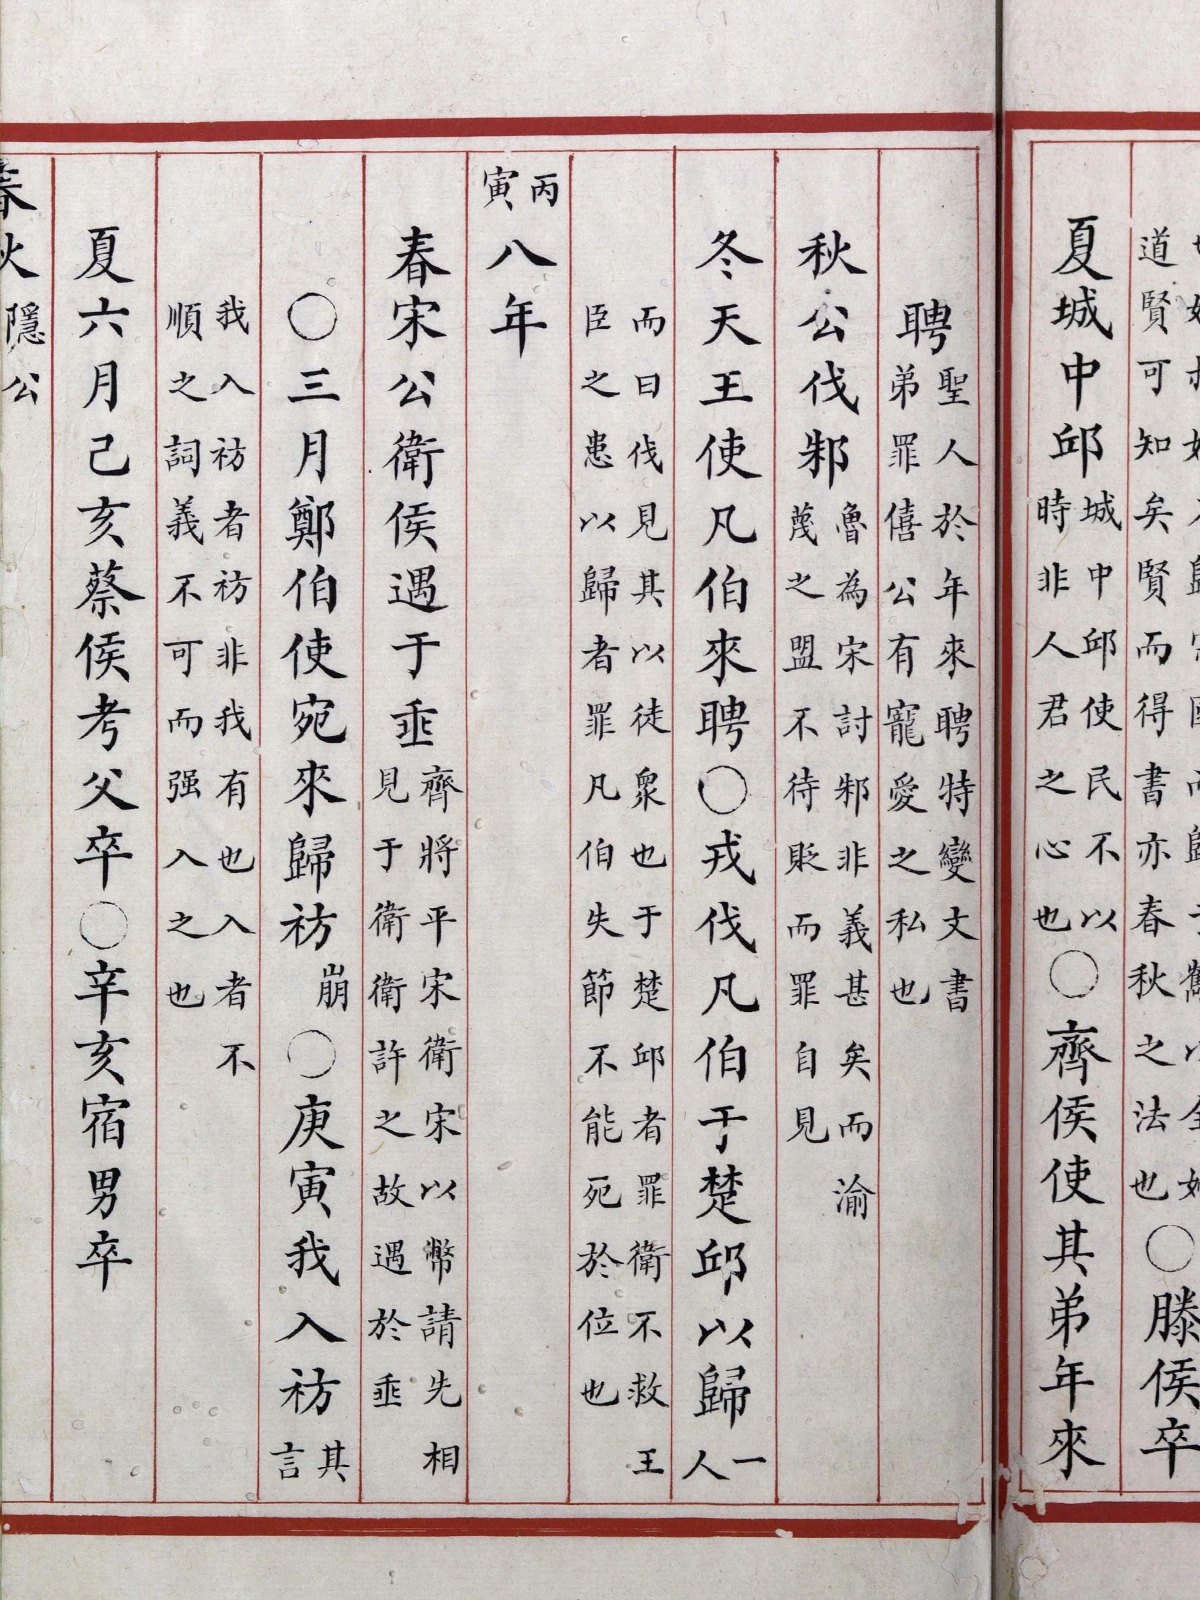 道賢可知矣賢而得書亦春秋之法也○滕侯卒
夏城中邱城中邱使民不以時非人君之心也○齊侯使其弟年來
聘聖人於年來聘特變文書弟罪僖公有寵愛之私也
秋公伐邾魯為宋討邾非義甚矣而渝蔑之盟不待貶而罪自見
冬天王使凡伯來聘○戎伐凡伯于楚邱以歸一人
而曰伐見其以徒衆也于楚邱者罪衛不救王臣之患以歸者罪凡伯失節不能死於位也
丙寅八年
春宋公衛侯遇于垂齊將平宋衛宋以幣請先相見于衛衛許之故遇於垂
○三月鄭伯使宛來歸祊崩○庚寅我入祊其言
我入祊者祊非我有也入者不順之詞義不可而强入之也
夏六月己亥蔡侯考父卒○辛亥宿男卒
春秋隱公